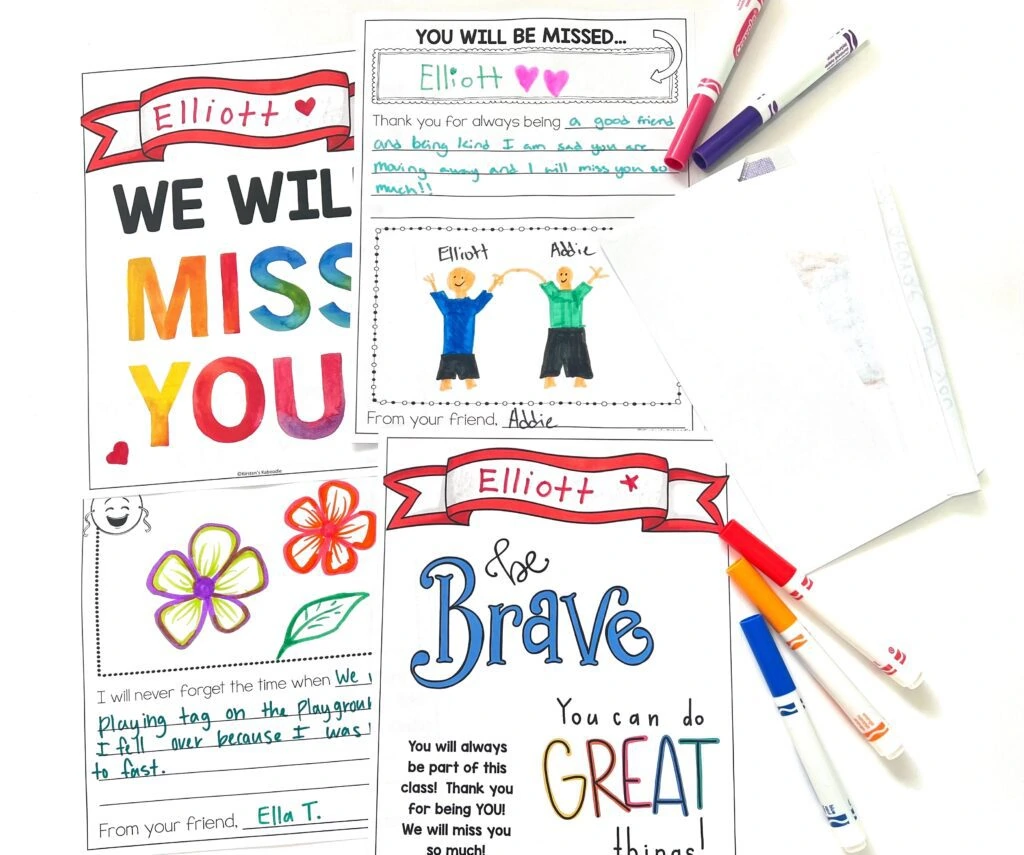 Elliott
WE WIL
MISS
YOU
©Kirsten's Kaboodle
YOU WILL BE MISSED...
Elliott
Thank you for always being a good friend
and being kind I am sad you are
moving away and I will miss you so
much!!
Elliott Addie
From your friend, Addie
I will never forget the time when We
playing tag on the playgroun
I fell over because I was
to fast.
From your friend, Ella T.
Elliott
be
Brave
You can do
GREAT
things!
You will always
be part of this
class! Thank you
for being YOU!
We will miss you
so much!
Crayola